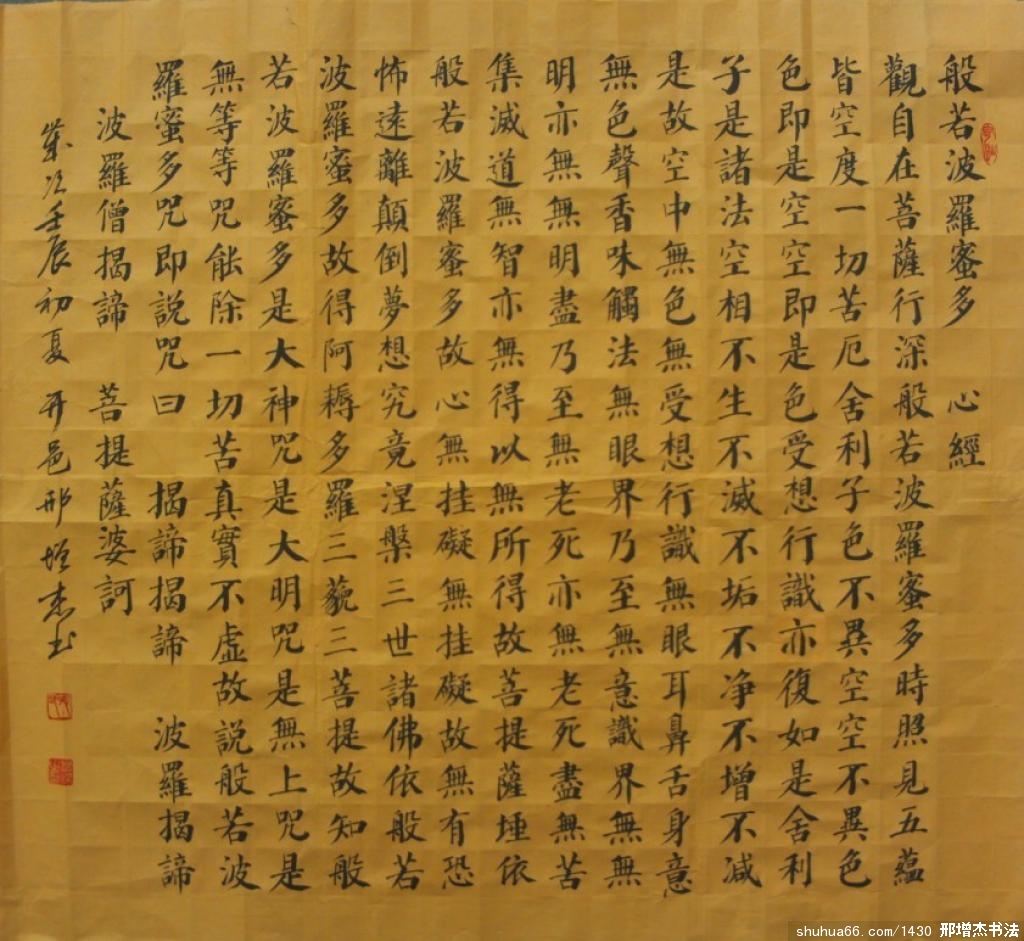 般若波羅蜜多 心經
觀自在菩薩行深般若波羅蜜多時照見五蘊
皆空度一切苦厄舍利子色不異空空不異色
色即是空空即是色受想行識亦復如是舍利
子是諸法空相不生不滅不垢不净不增不减
是故空中無色無受想行識無眼耳鼻舌身意
無色聲香味觸法無眼界乃至無意識界無無
明亦無無明盡乃至無老死亦無老死盡無苦
集滅道無智亦無得以無所得故菩提薩埵依
般若波羅蜜多故心無挂礙無挂礙故無有恐
怖遠離顛倒夢想究竟涅槃三世諸佛依般若
波羅蜜多故得阿耨多羅三藐三菩提故知般
若波羅蜜多是大神咒是大明咒是無上咒是
無等等咒能除一切苦真實不虛故説般若波
羅蜜多咒即説咒曰 揭諦揭諦 波羅揭諦
波羅僧揭諦 菩提薩婆訶
歲次壬辰初夏 开邑邢增杰书
shuhua66.com/1430 邢增杰书法